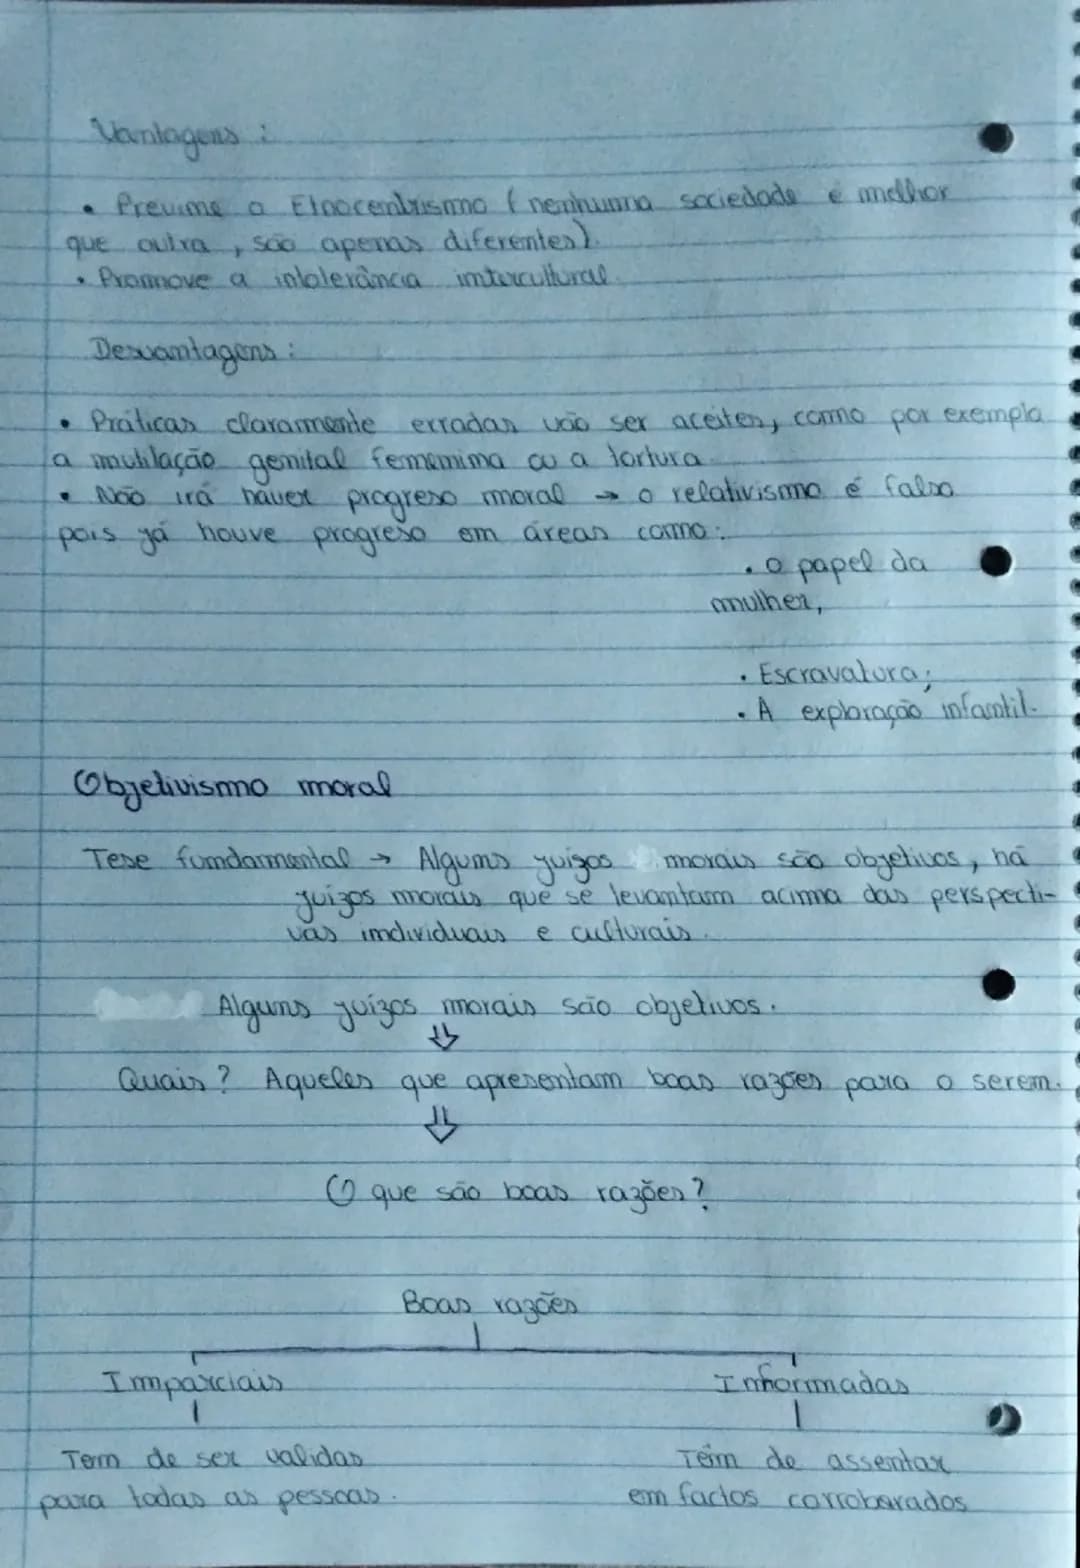 Vantagens :
• Previne o Etnocentrismo (nenhuma sociedade é melhor
que outra, são apenas diferentes).
• Promove a intolerância intercultural.
Desvantagens :
• Práticas claramente erradas vão ser aceites, como por exemplo
a mutilação genital feminina ou a tortura
• Não irá haver progreso moral → o relativismo é falso
pois já houve progreso em áreas como:
• o papel da
mulher,
• Escravatura;
• A exploração infantil.
Objetivismo moral
Tese fundamental → Alguns juízos morais são objetivos, há
juízos morais que se levantam acima das perspecti-
vas individuais e culturais.
Alguns juízos morais são objetivos.
⇓
Quais? Aqueles que apresentam boas razões para o serem.
⇓
O que são boas razões?
Boas razões
Imparciais Informadas
Tem de ser validas Têm de assentar
para todas as pessoas. em factos corroborados